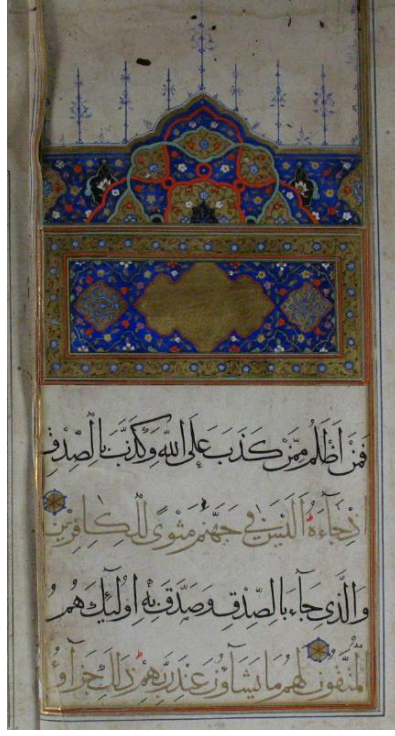 فَمَنْ اَظْلَمُ مِمَّنْ كَذَبَ عَلَى اللّٰهِ وَكَذَّبَ بِالصِّدْقِ
اِذْ جَاءَهُ اَلَيْسَ فِي جَهَنَّمَ مَثْوًى لِلْكَافِرِينَ
وَالَّذِي جَاءَ بِالصِّدْقِ وَصَدَّقَ بِهِ اُولٰئِكَ هُمُ
الْمُتَّقُونَ لَهُمْ مَا يَشَاؤُنَ عِنْدَ رَبِّهِمْ ذٰلِكَ جَزَاؤُ